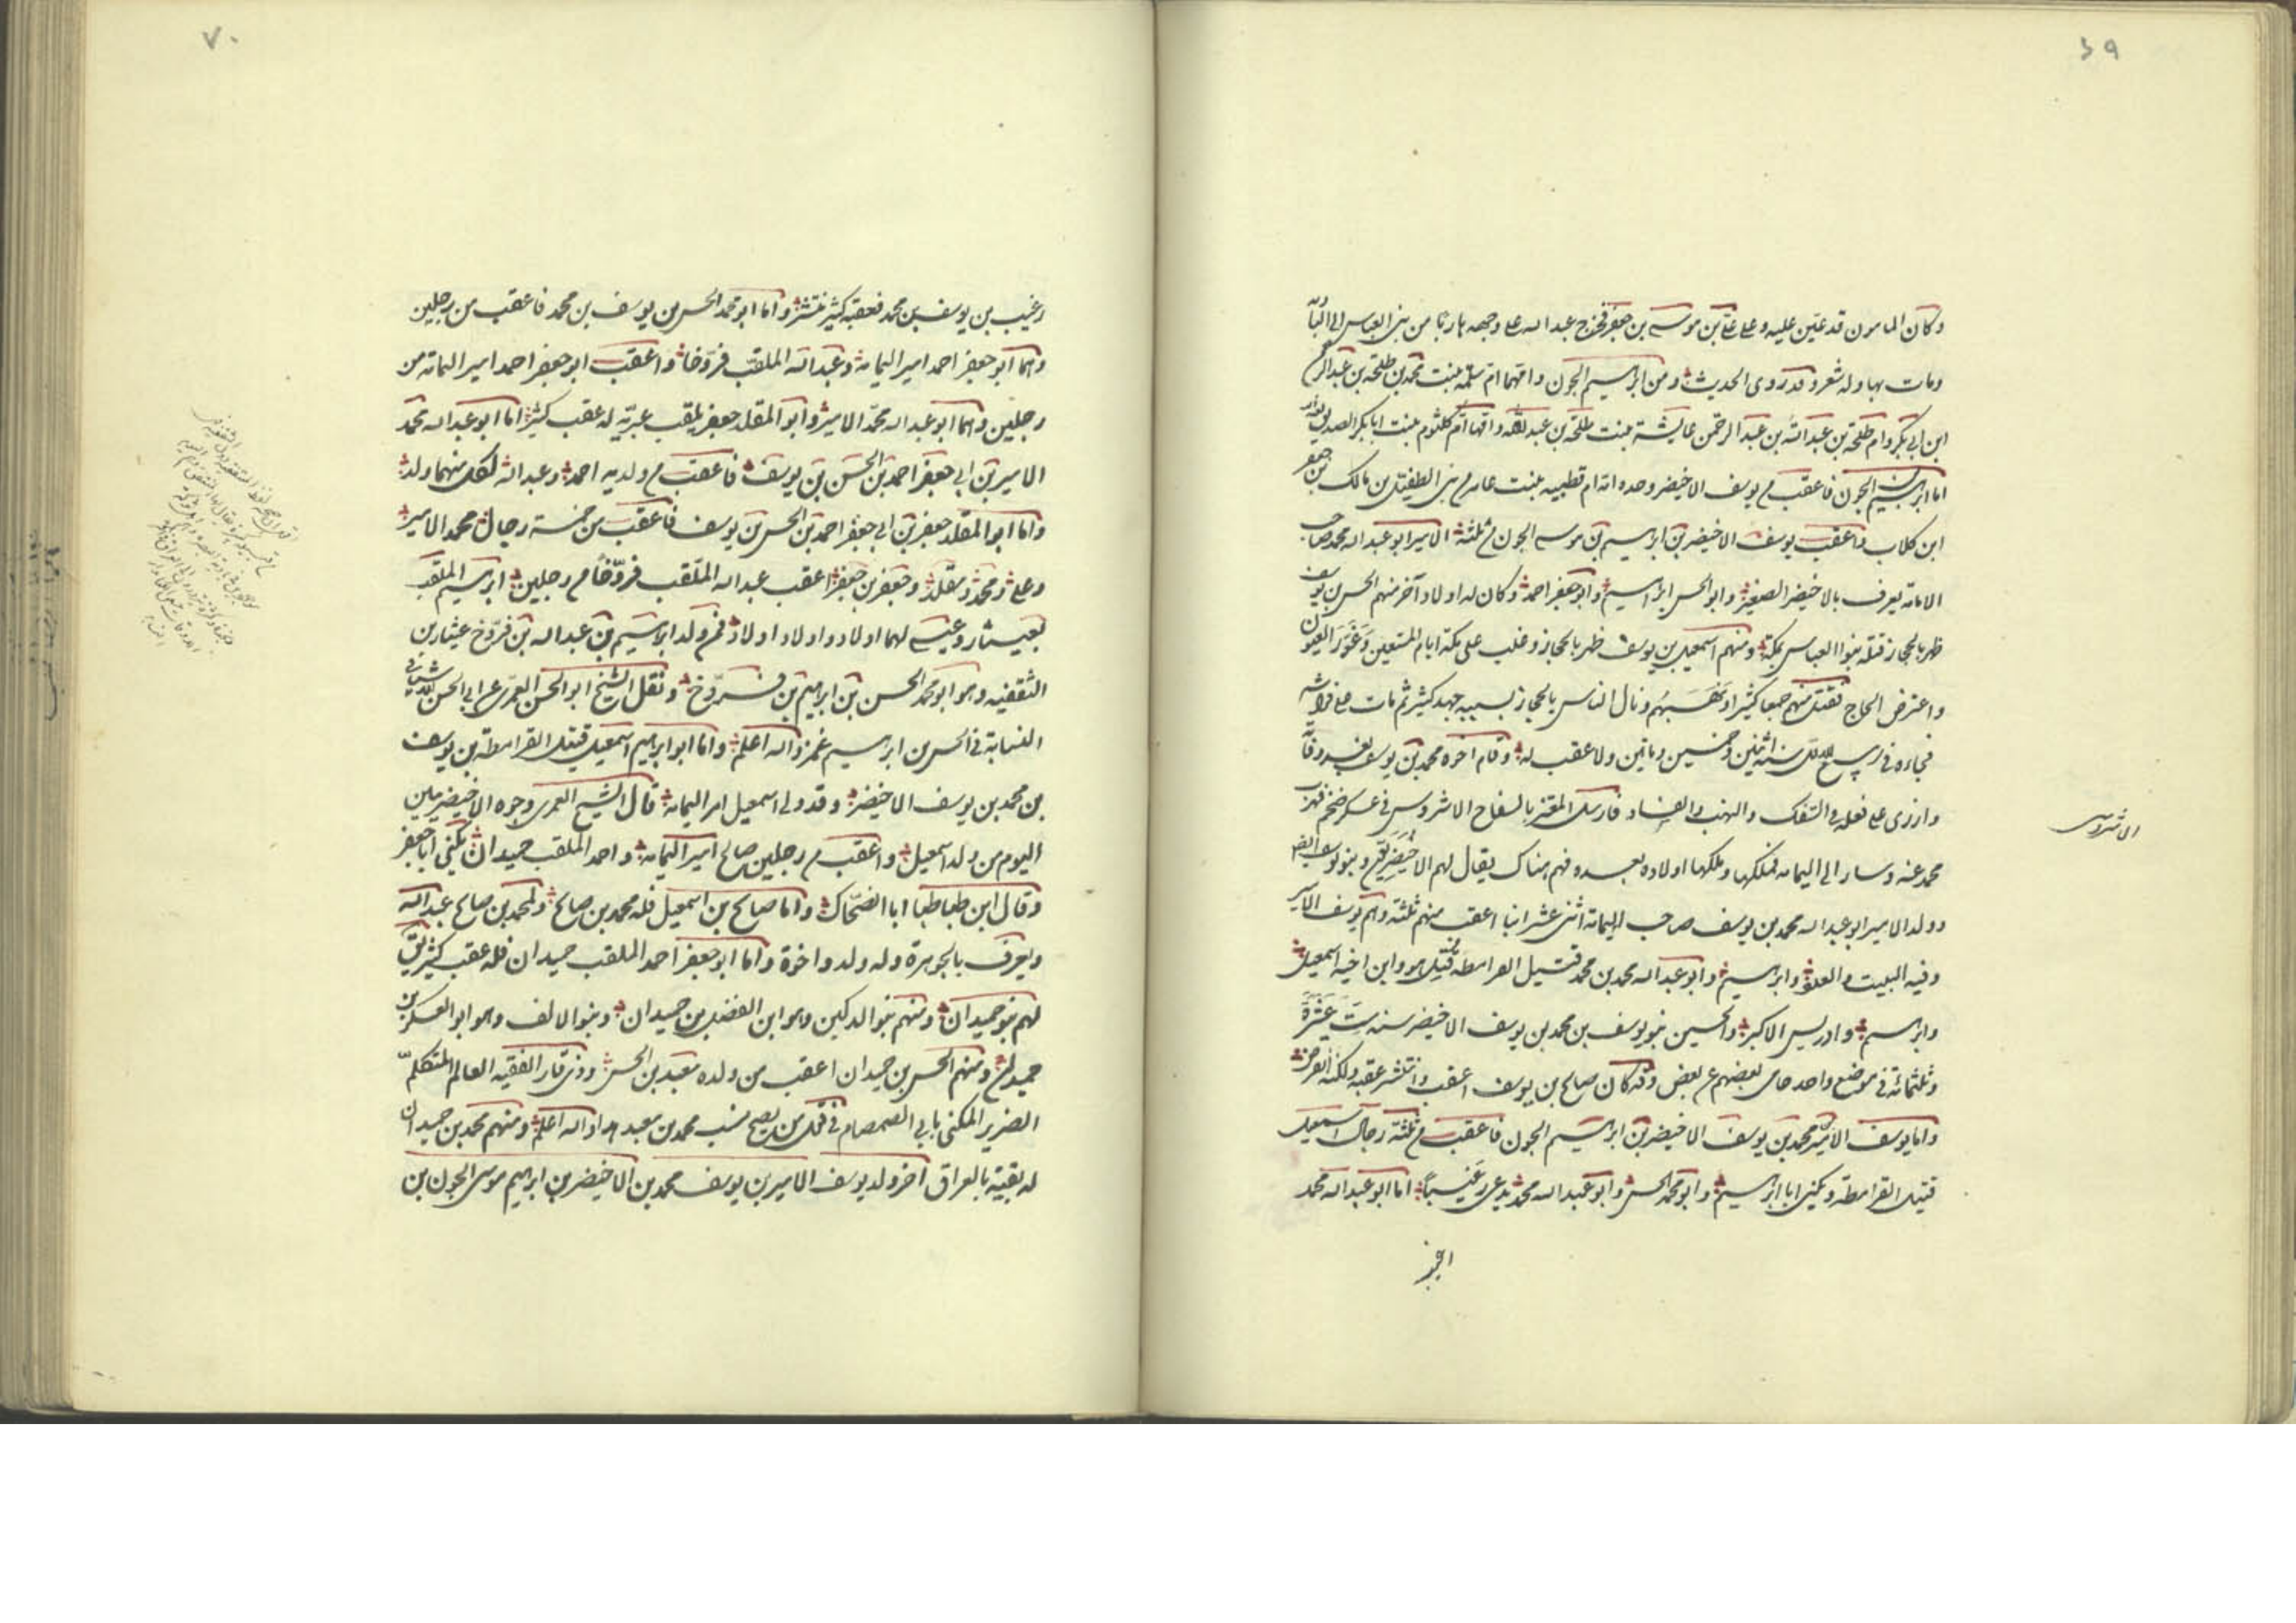 ٦٩
وكان المامون قد عين عليه وعلى علي بن موسى بن جعفر فخرج عبد الله على وجهه هاربا من بنى العباس الى البادية
ومات بها وله شعر وقد روى الحديث ومن ابراهيم الجون وامهما ام سلمة بنت محمد بن طلحة بن عبد الرحمن
ابن ابى بكر وام طلحة بن عبد الله بن عبد الرحمن عايشة بنت طلحة بن عبد الله وامها ام كلثوم بنت ابا بكر الصديق
اما ابراهيم بن الجون فاعقب من يوسف الاخيضر وحده امه ام قطبيه بنت عامر من بنى الطفيل بن مالك بن جعفر
ابن كلاب فاعقب يوسف الاخيضر بن ابراهيم بن موسى الجون من ثلثة الامير ابو عبد الله محمد صاحب
الامامة يعرف بالاخيضر الصغير وابو الحسن ابراهيم وابو جعفر احمد وكان له اولاد آخر منهم الحسن بن يوسف
ظهر بالحجاز قتله بنوا العباس بمكة ومنهم اسمعيل بن يوسف ظهر بالحجاز وغلب على مكة ايام المستعين وغور العيون
واعترض الحاج فقتل منهم جمعا كثيرا ونهبهم ونال الناس بالحجاز بسببه جهد كثير ثم مات على فراشه
فجاءه فى ربيع الاول سنة اثنين وخمسين وماتين ولا عقب له وقام اخوه محمد بن يوسف بعد وفاته
وازرى على فعله فى السفك والنهب والفساد فارسل المعتز بالسفاح الاشروسى فى عسكر ضخم فهرب
محمد عنه وسار الى اليمامه فملكها وملكها اولاده بعده فهم هناك يقال لهم الاخيضريون وبنو يوسف ايضا
وولد الامير ابو عبد الله محمد بن يوسف صاحب اليمامة اثنى عشر ابنا اعقب منهم ثلثة وهم يوسف الامير
وفيه البيت والعدد وابراهيم وابو عبد الله محمد بن محمد قتيل القرامطة قتل هو وابن اخيه اسمعيل
وابراهيم وادريس الاكبر والحسين بنو يوسف بن محمد بن يوسف الاخيضر سنه ست عشرة
وثلثمائة فى موضع واحد حامى بعضهم عن بعض وقد كان صالح بن يوسف اعقب وانتشر عقبه ولكنه انقرض
واما يوسف الامير بن محمد بن يوسف الاخيضر بن ابراهيم الجون فاعقب من ثلثة رجال اسمعيل
قتيل القرامطة ويكنى ابا ابراهيم وابو محمد الحسن وابو عبد الله محمد يدعى رغيبا اما ابو عبد الله محمد
الاشروسى
٧٠
رغيب بن يوسف بن محمد فعقبه كثير منتشر واما ابو محمد الحسن بن يوسف بن محمد فاعقب من رجلين
وهما ابو جعفر احمد امير اليمامة وعبد الله الملقب فروخا واعقب ابو جعفر احمد امير اليمامه من
رجلين وهما ابو عبد الله محمد الامير وابو المقلد جعفر يلقب عبرية له عقب كثير اما ابو عبد الله محمد
الامير بن ابى جعفر احمد بن الحسن بن يوسف فاعقب من ولديه احمد وعبد الله لكل منهما ولد
واما ابو المقلد جعفر بن ابى جعفر احمد بن الحسن بن يوسف فاعقب من خمسة رجال محمد الامير
وعلى ومحمد ومقلد وجعفر بن جعفر اعقب عبد الله الملقب فروخا من رجلين ابراهيم الملقب
بعيثار وعيسى لهما اولاد واولاد اولاد فمن ولد ابراهيم بن عبد الله بن فروخ عيثار بن
الثقفيه وهو ابو محمد الحسن بن ابراهيم بن فروخ ونقل الشيخ ابو الحسن العمرى عن ابى الحسن الاشنانى
النسابة فى الحسن بن ابراهيم غمز والله اعلم واما ابو ابراهيم اسمعيل قتيل القرامطة بن يوسف
بن محمد بن يوسف الاخيضر وقد ولى اسمعيل امر اليمامه قال الشيخ العمرى وجوه الاخيضريين
اليوم من ولد اسمعيل واعقب من رجلين صالح امير اليمامه واحمد الملقب حميدان يكنى ابا جعفر
وقال ابن طباطبا ابا الضحاك واما صالح بن اسمعيل فله محمد بن صالح ولمحمد بن صالح عبد الله
ويعرف بالجوهرة وله ولد واخوة واما ابو جعفر احمد الملقب حميدان فله عقب كثير يقال
لهم بنو حميدان ومنهم بنو الدكين وهو ابن الفضل بن حميدان وبنو الالف وهو ابو العسكر بن
حميدان ومنهم الحسن بن حميدان اعقب من ولده معبد بن الحسن وذى قار الفقيه العالم المتكلم
الضرير المكنى بابى الصمصام فى قول من يصح نسب محمد بن معبد هذا والله اعلم ومنهم محمد بن حميدان
له بقية بالعراق آخر ولد يوسف الامير بن يوسف محمد بن الاخيضر بن ابراهيم موسى الجون بن